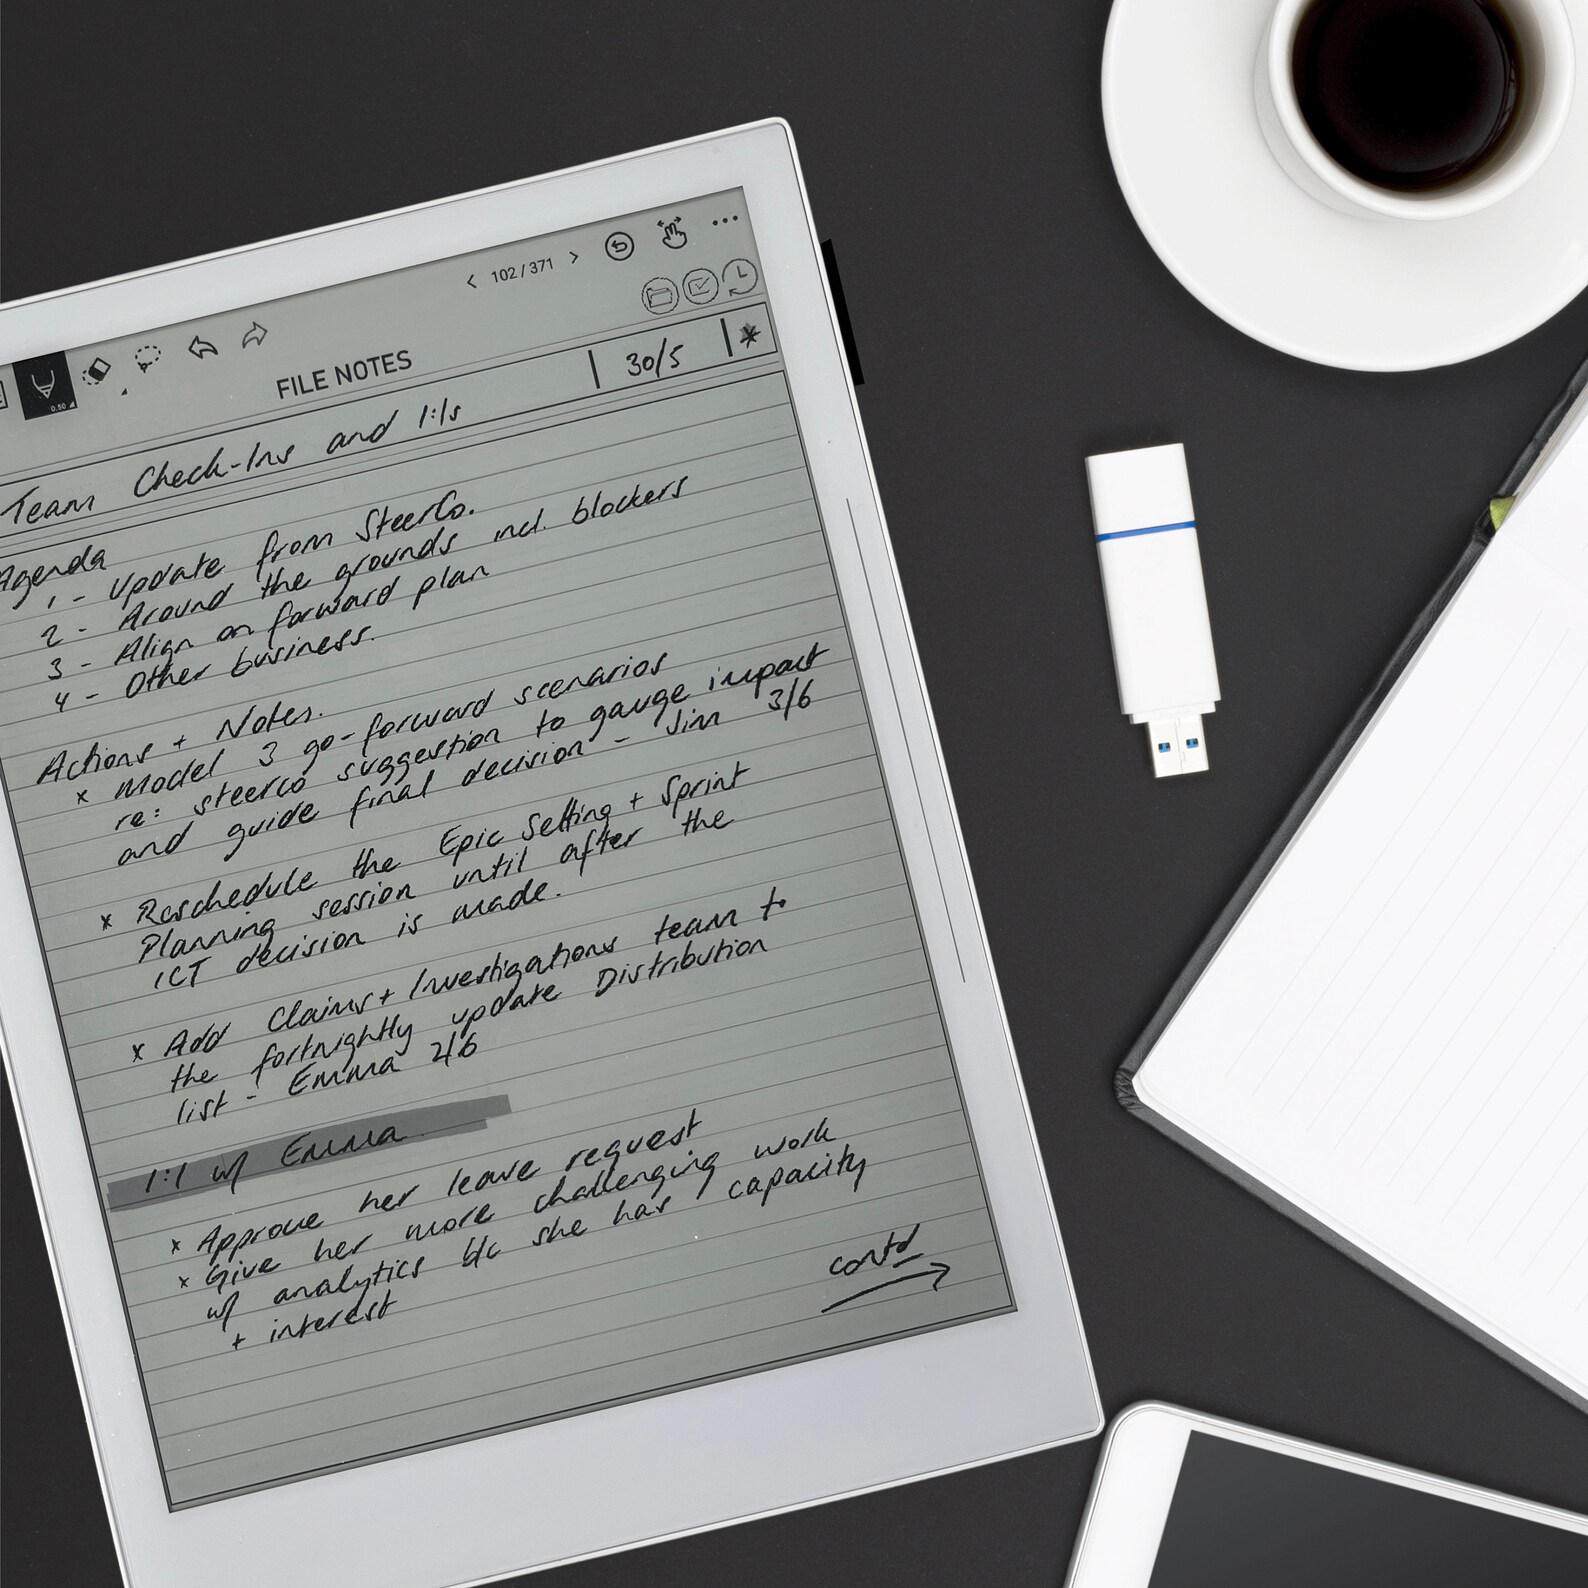 < 102/371 >
0.50
FILE NOTES
Team Check-Ins and 1:1s
30/5
*
Agenda
1 - Update from SteerCo.
2 - Around the grounds incl. blockers
3 - Align on forward plan
4 - Other business.
Actions + Notes.
x Model 3 go-forward scenarios
re: steerco suggestion to gauge impact
and guide final decision - Jim 3/6
x Reschedule the Epic Setting + Sprint
Planning session until after the
ICT decision is made.
x Add Claims + Investigations team to
the fortnightly update Distribution
list - Emma 2/6
1:1 w/ Emma
x Approve her leave request
x Give her more challenging work
w/ analytics b/c she has capacity
+ interest
contd